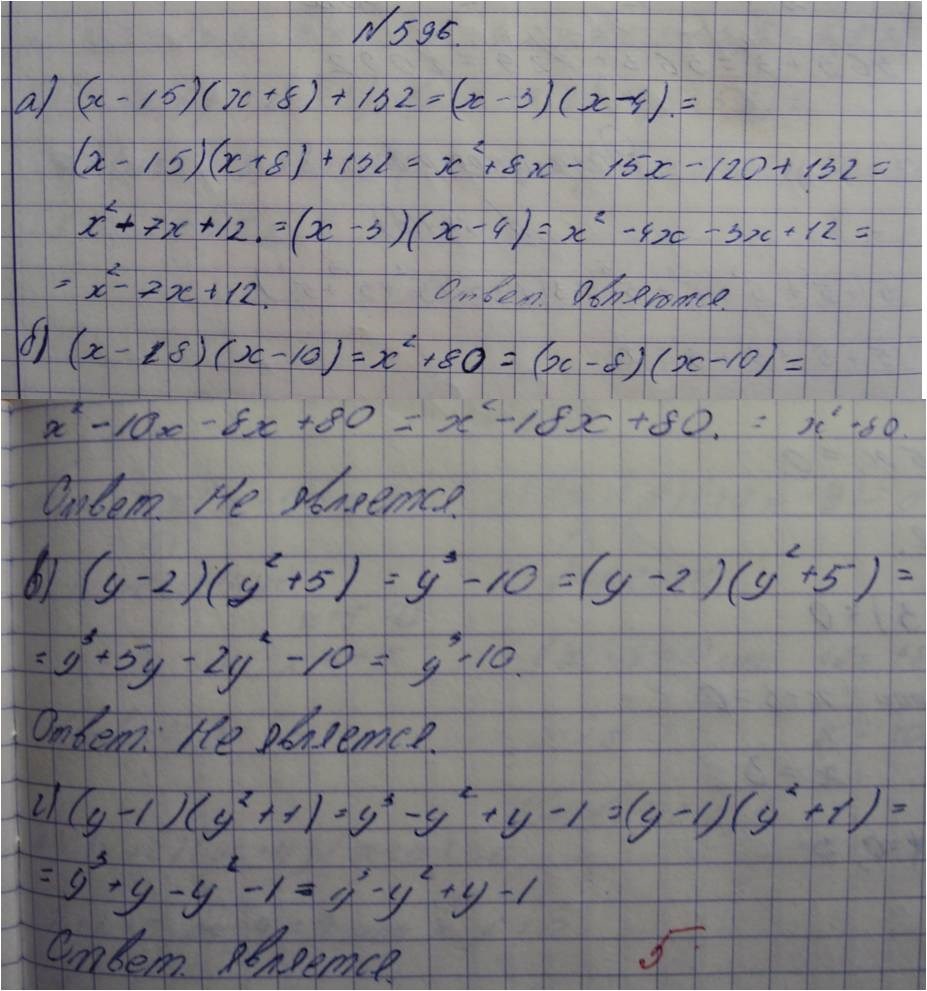 №596.
а) (x-15)(x+8)+132=(x-3)(x-4).=
(x-15)(x+8)+132=x²+8x-15x-120+132=
x²+7x+12.=(x-3)(x-4)=x²-4x-3x+12=
=x²-7x+12. Ответ. Являются.
б) (x-8)(x-10)=x²+80=(x-8)(x-10)=
x²-10x-8x+80=x²-18x+80.=x²+80.
Ответ. Не является.
в) (y-2)(y²+5)=y³-10=(y-2)(y²+5)=
=y³+5y-2y²-10=y³-10.
Ответ: Не является.
г) (y-1)(y²+1)=y³-y²+y-1=(y-1)(y²+1)=
=y³+y-y²-1=y³-y²+y-1
Ответ. является.
5